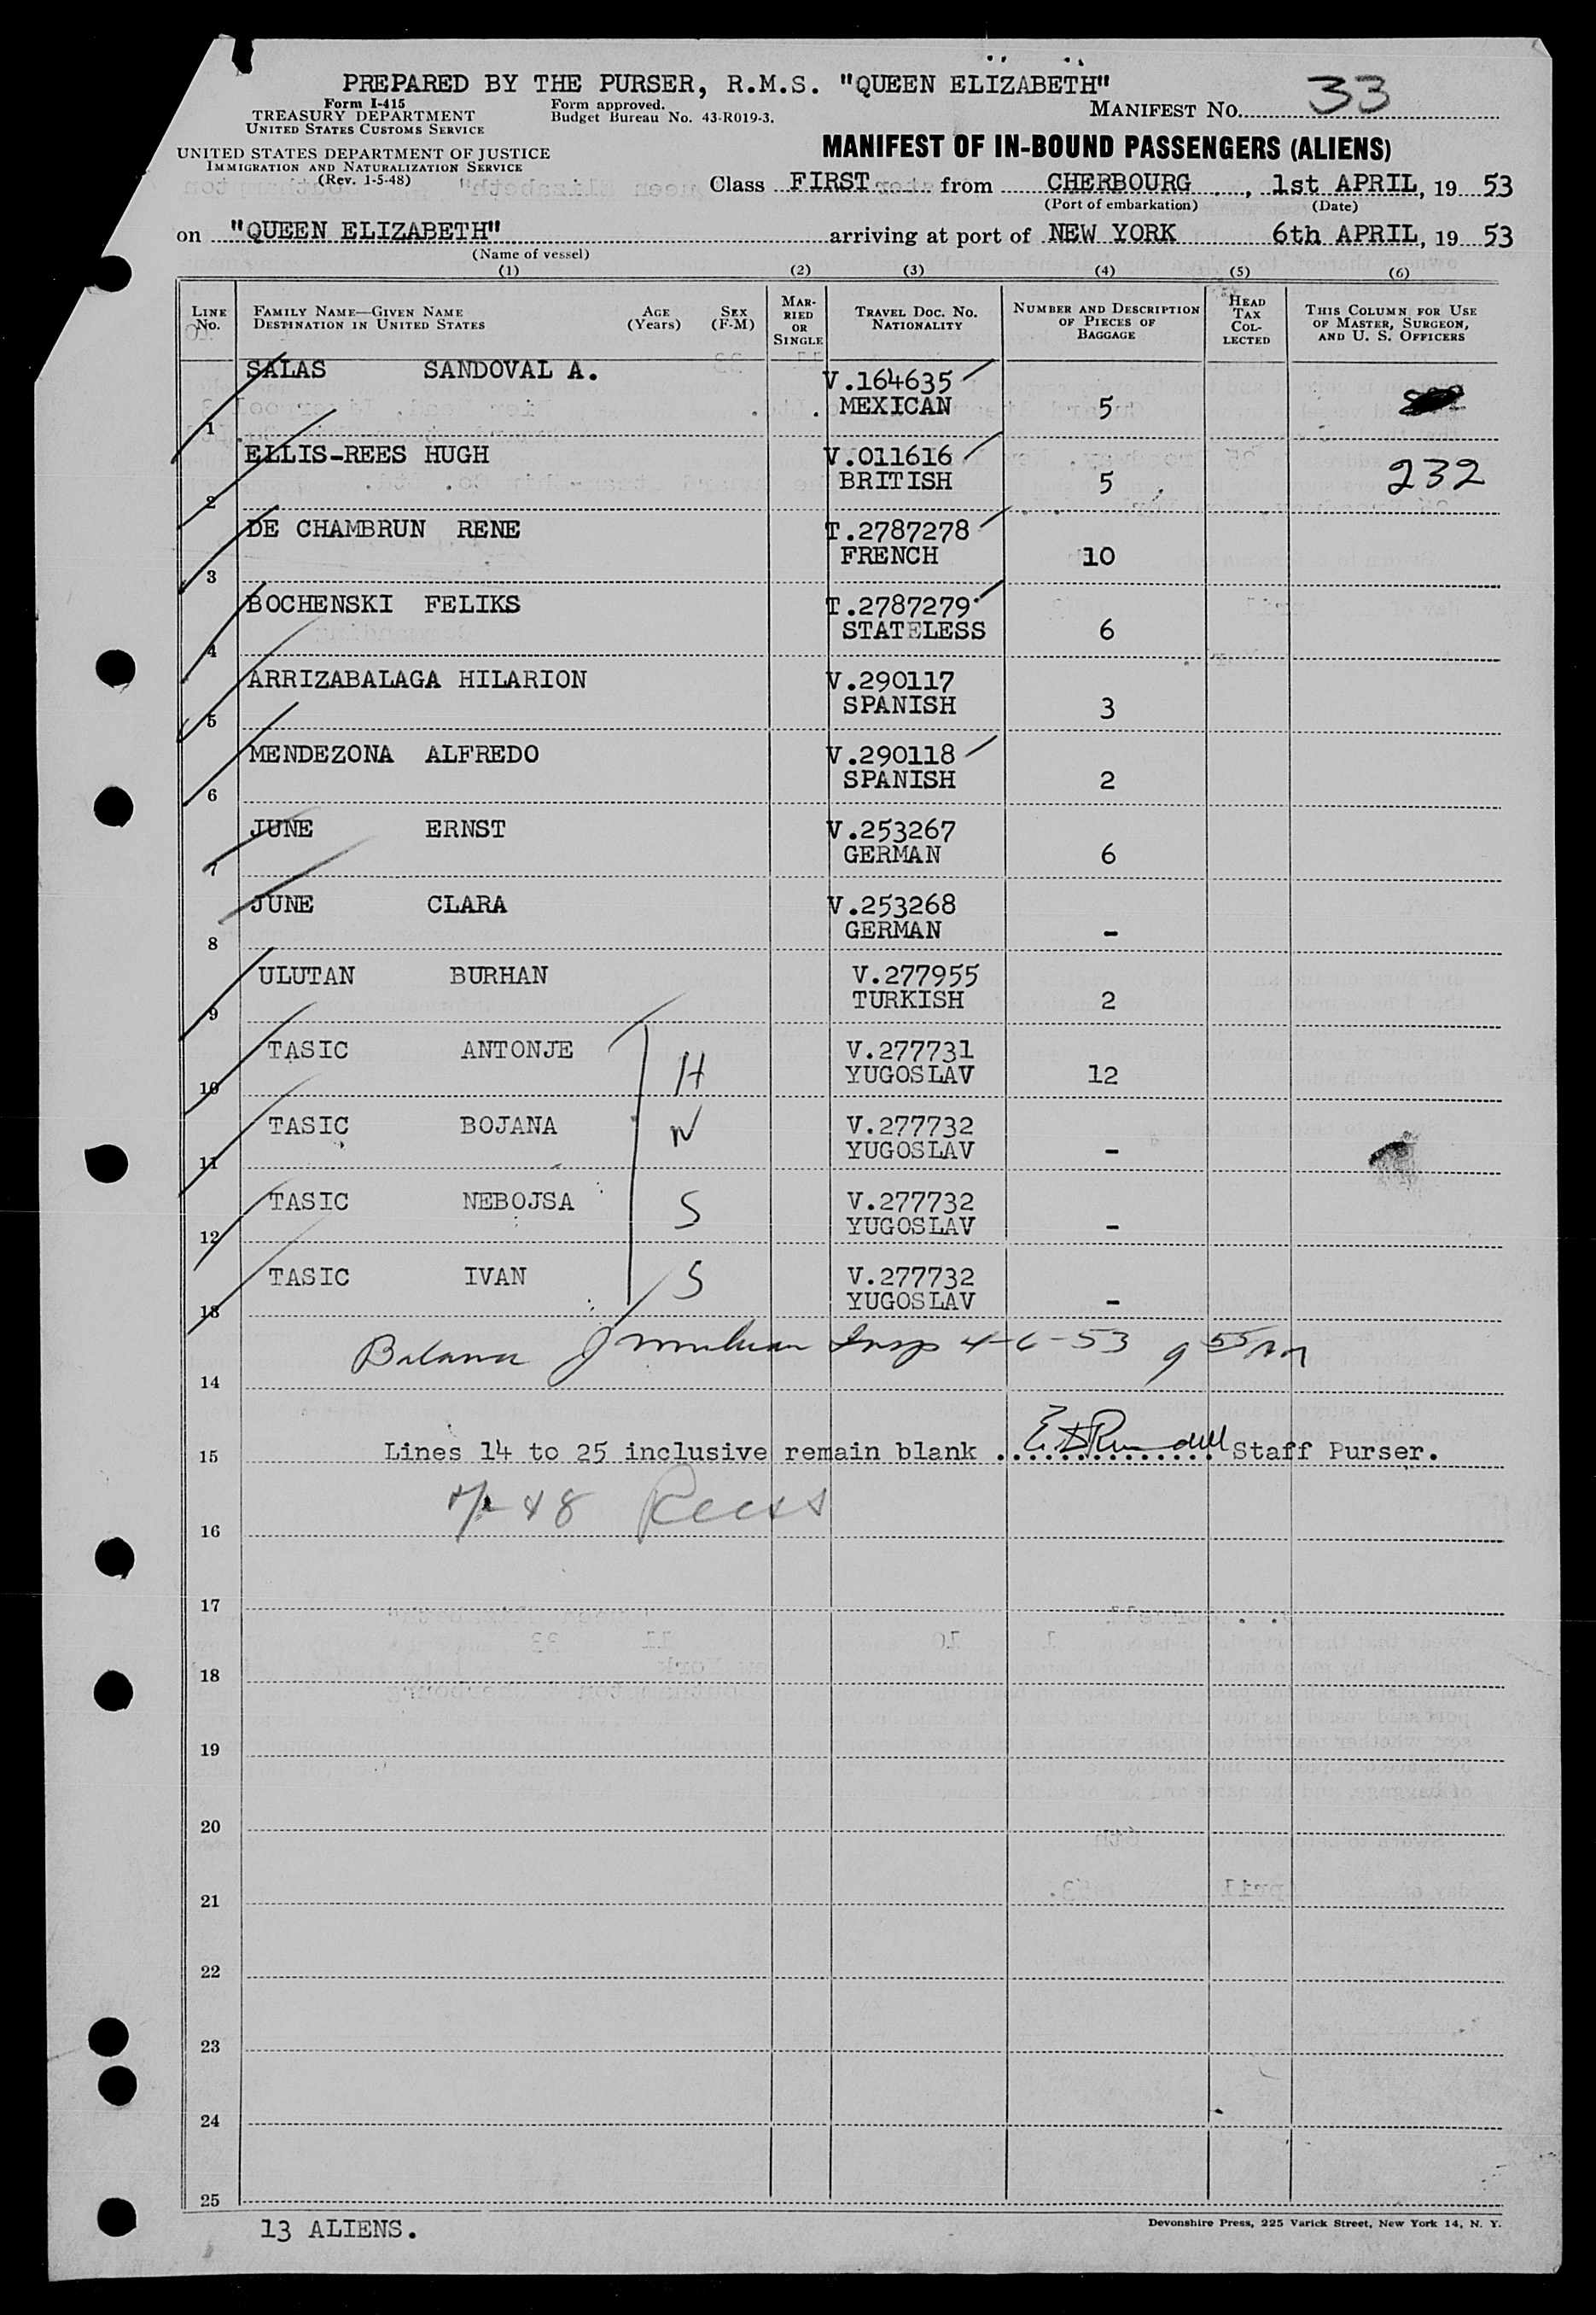 PREPARED BY THE PURSER, R.M.S. "QUEEN ELIZABETH"
Form I-415
TREASURY DEPARTMENT
UNITED STATES CUSTOMS SERVICE
Form approved.
Budget Bureau No. 43-R019-3.
MANIFEST NO. 33
UNITED STATES DEPARTMENT OF JUSTICE
IMMIGRATION AND NATURALIZATION SERVICE
(Rev. 1-5-48)
MANIFEST OF IN-BOUND PASSENGERS (ALIENS)
Class FIRST from CHERBOURG, 1st APRIL, 19 53
(Port of embarkation) (Date)
on "QUEEN ELIZABETH" arriving at port of NEW YORK 6th APRIL, 19 53
(Name of vessel)
(1) (2) (3) (4) (5) (6)
LINE No. FAMILY NAME—GIVEN NAME DESTINATION IN UNITED STATES AGE (Years) SEX (F-M) MARRIED OR SINGLE TRAVEL DOC. NO. NATIONALITY NUMBER AND DESCRIPTION OF PIECES OF BAGGAGE HEAD TAX COLLECTED THIS COLUMN FOR USE OF MASTER, SURGEON, AND U. S. OFFICERS
1 SALAS SANDOVAL A. V.164635 MEXICAN 5
2 ELLIS-REES HUGH V.011616 BRITISH 5 232
3 DE CHAMBRUN RENE T.2787278 FRENCH 10
4 BOCHENSKI FELIKS T.2787279 STATELESS 6
5 ARRIZABALAGA HILARION V.290117 SPANISH 3
6 MENDEZONA ALFREDO V.290118 SPANISH 2
7 JUNE ERNST V.253267 GERMAN 6
8 JUNE CLARA V.253268 GERMAN -
9 ULUTAN BURHAN V.277955 TURKISH 2
10 TASIC ANTONJE H V.277731 YUGOSLAV 12
11 TASIC BOJANA W V.277732 YUGOSLAV -
12 TASIC NEBOJSA S V.277732 YUGOSLAV -
13 TASIC IVAN S V.277732 YUGOSLAV -
14 Insp 4-6-53 9 55 AM
15 Lines 14 to 25 inclusive remain blank .............. Staff Purser.
16
17
18
19
20
21
22
23
24
25
13 ALIENS.
Devonshire Press, 225 Varick Street, New York 14, N. Y.